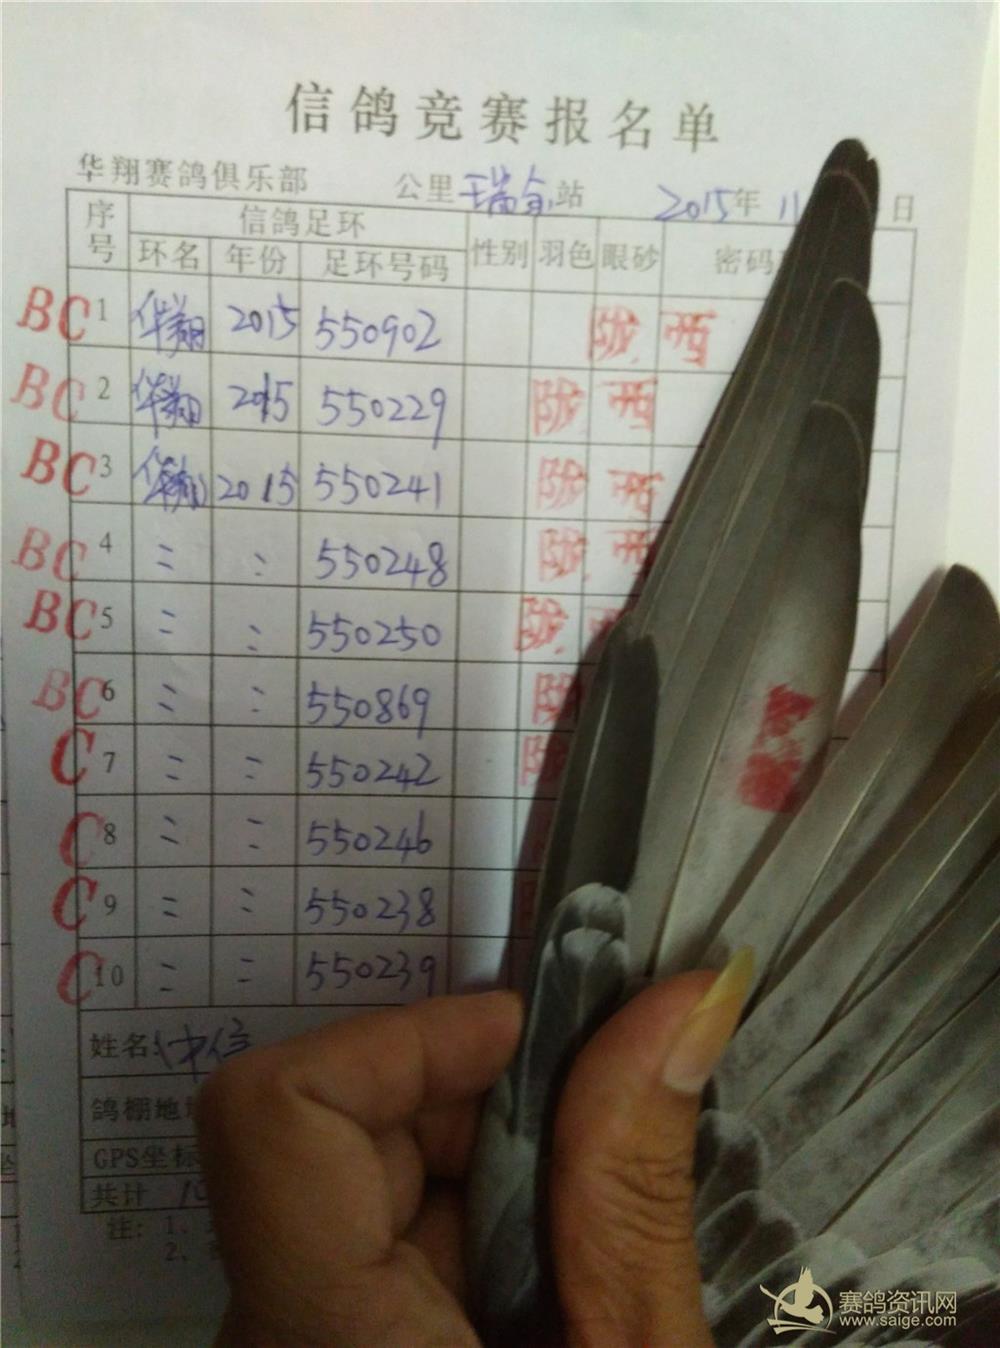 信鸽竞赛报名单
华翔赛鸽俱乐部 公里 瑞金 站 2015年 11 日
序号 信鸽足环 性别 羽色 眼砂 密码
环名 年份 足环号码
BC 1 华翔 2015 550902 陇西
BC 2 华翔 2015 550229 陇西
BC 3 华翔 2015 550241 陇西
BC 4 〃 〃 550248 陇西
BC 5 〃 〃 550250 陇
BC 6 〃 〃 550869 陇
C 7 〃 〃 550242 陇
C 8 〃 〃 550246
C 9 〃 〃 550238
C 10 〃 〃 550239
姓名:
鸽棚地
GPS坐标
共计 10
注: 1、
2、
赛鸽资讯网
www.saige.com